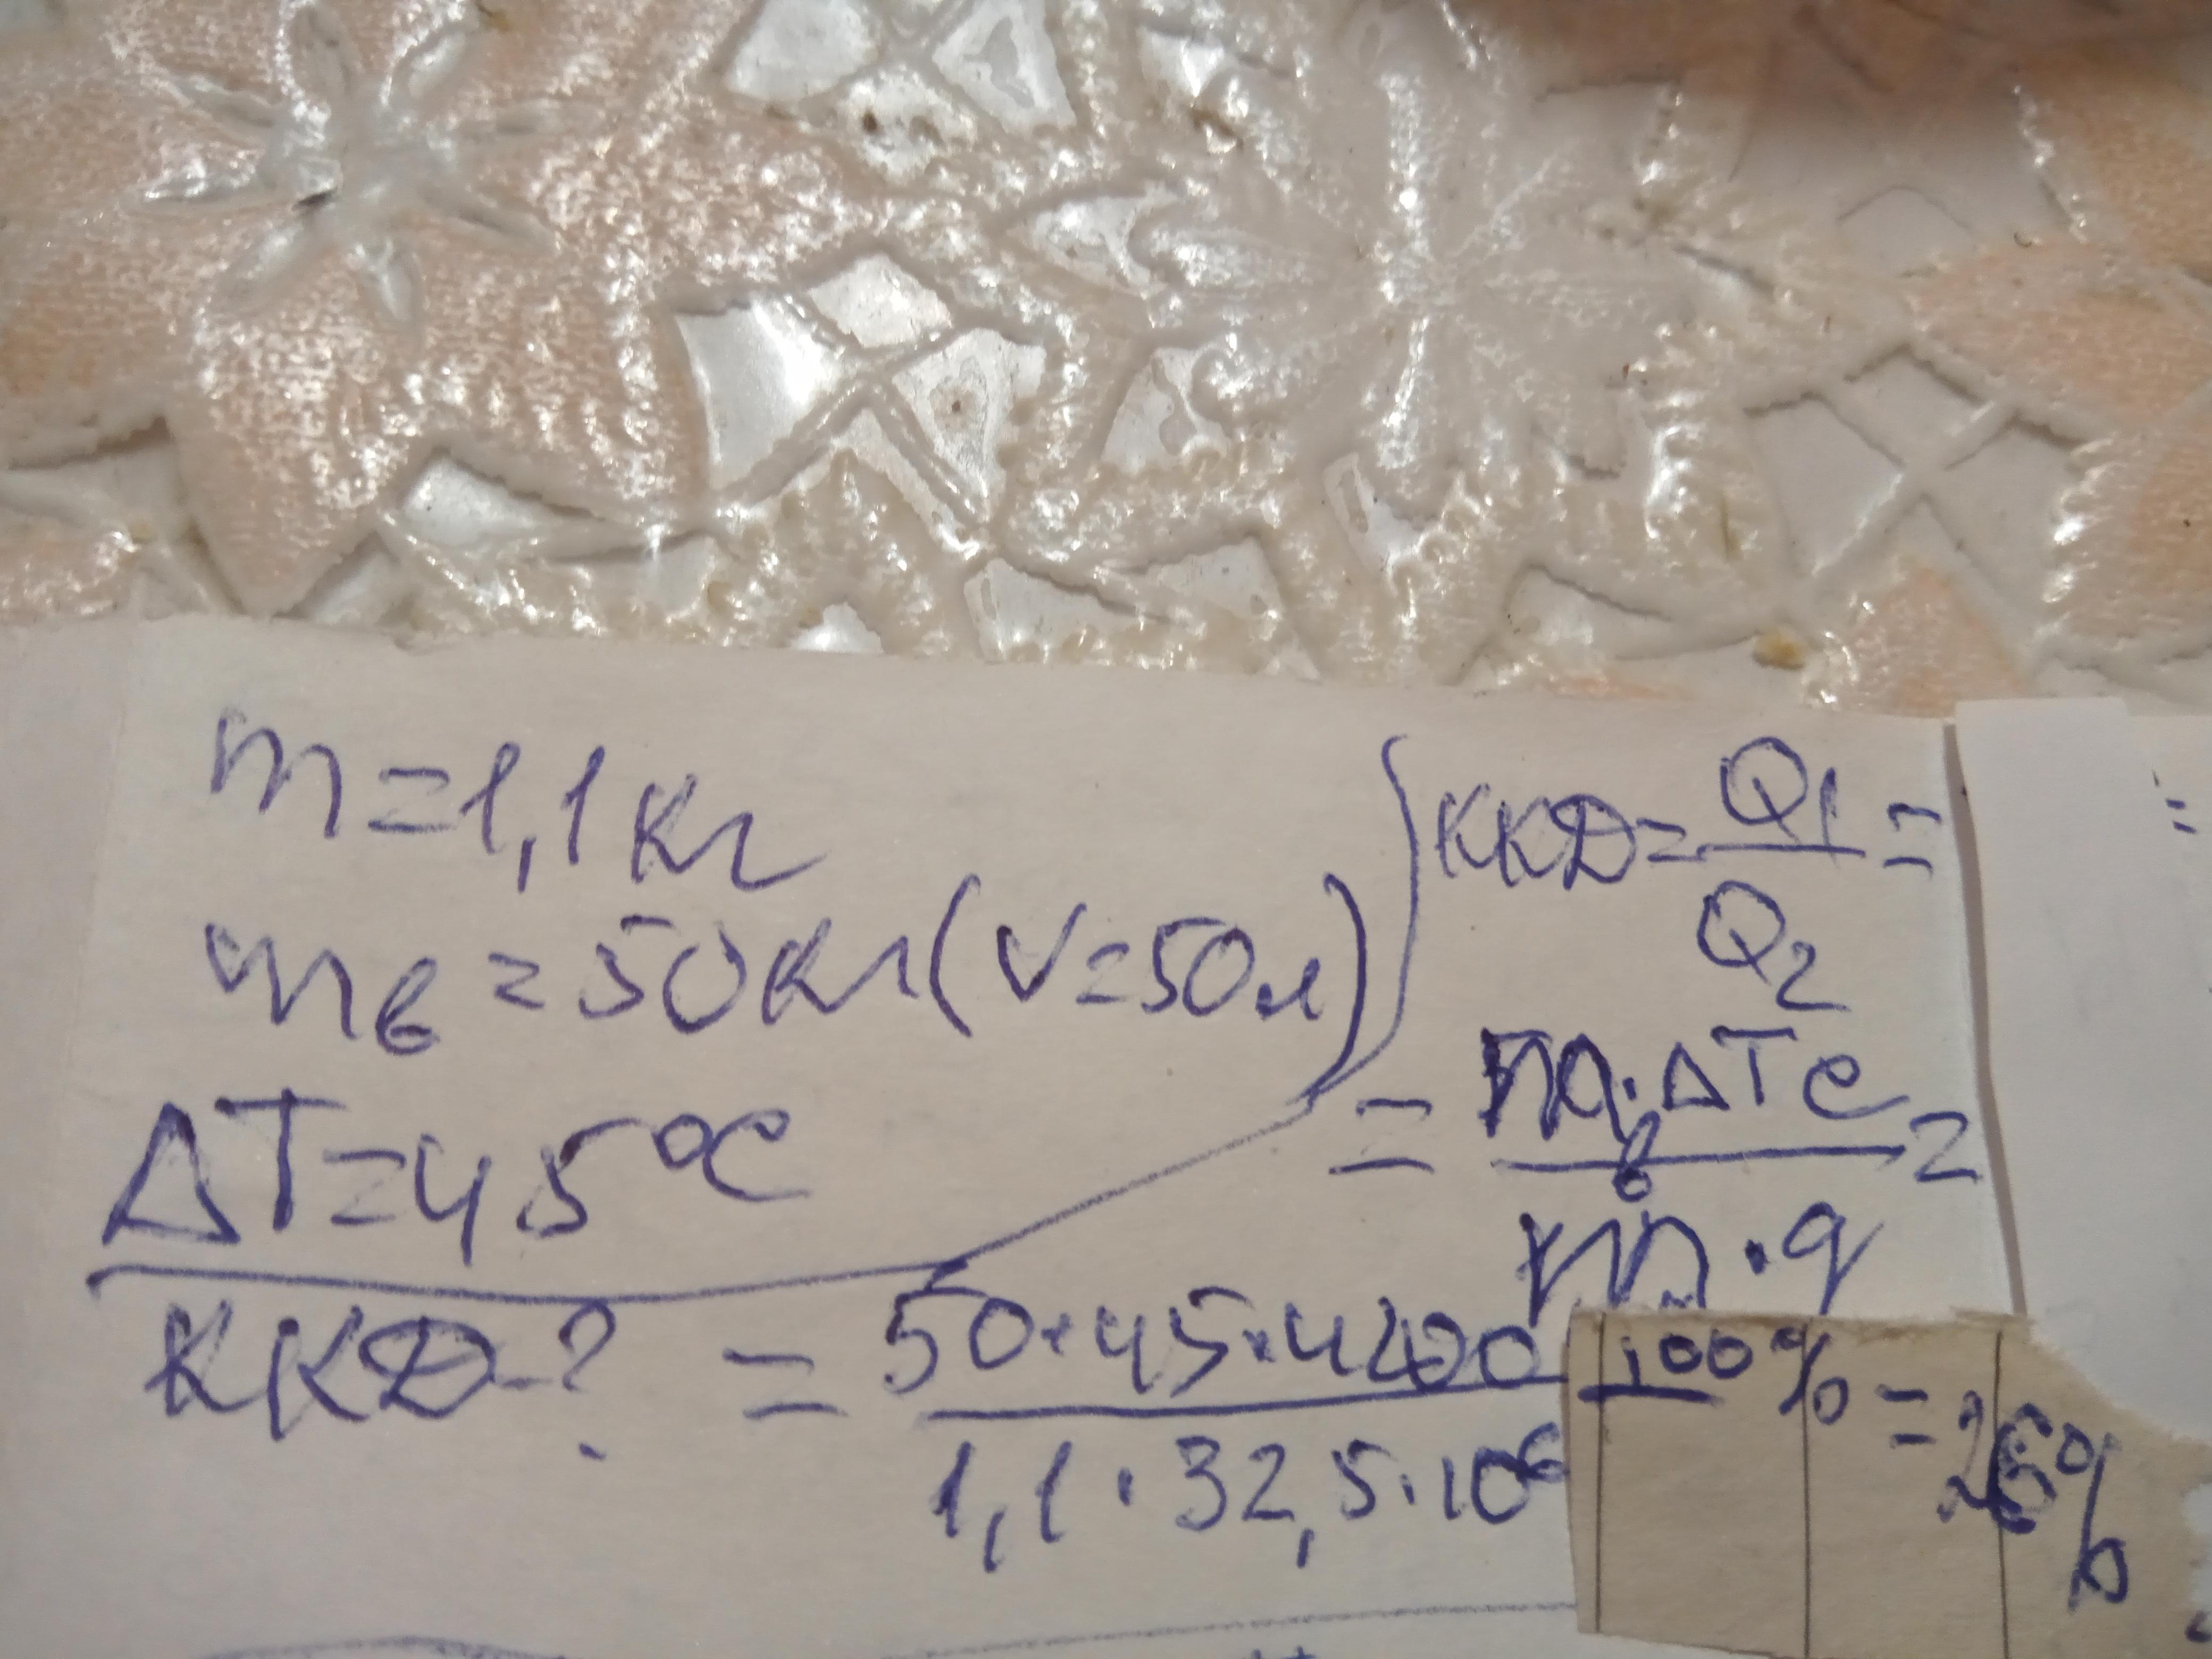 m=1,1кг
mв=50кг(V=50л)
ΔT=45°C
ККД-?
ККД=Q1/Q2=
=mв·ΔTc/m·q=
=50·45·4200·100%/1,1·32,5·10⁶=26%